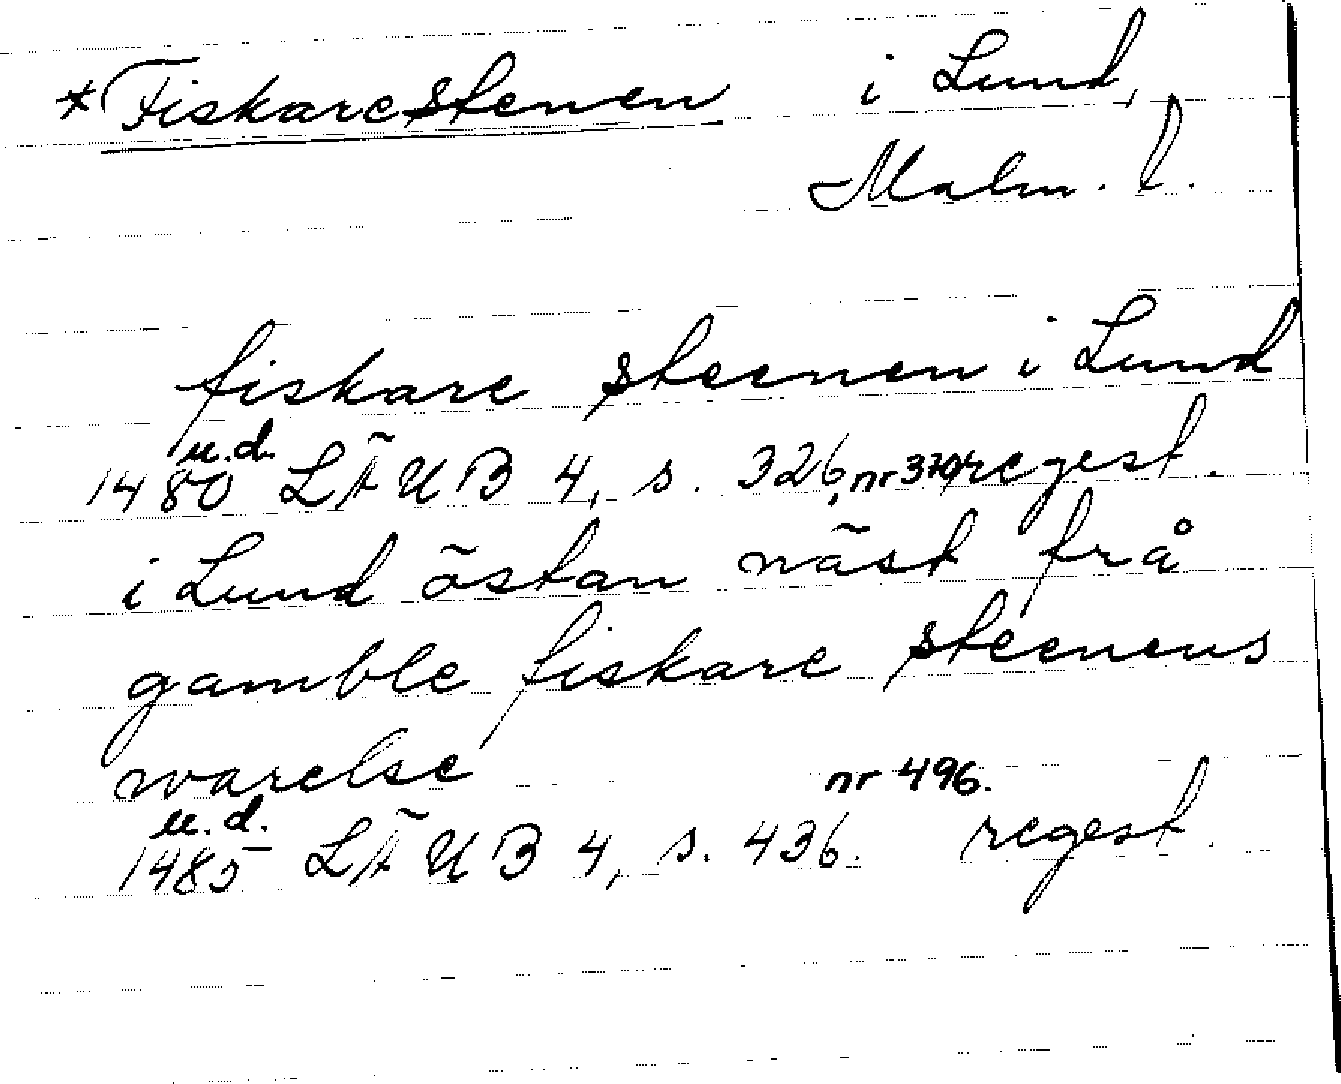 *Fiskarestenen i Lund,
Malm. l.
fiskare steenen i Lund
u.d.
1480 LÄUB 4, s. 326, nr 370, regest.
i Lund östan näst frå
gamble fiskare steenens
warelse
nr 496.
u.d.
1485 LÄUB 4, s. 436. regest.